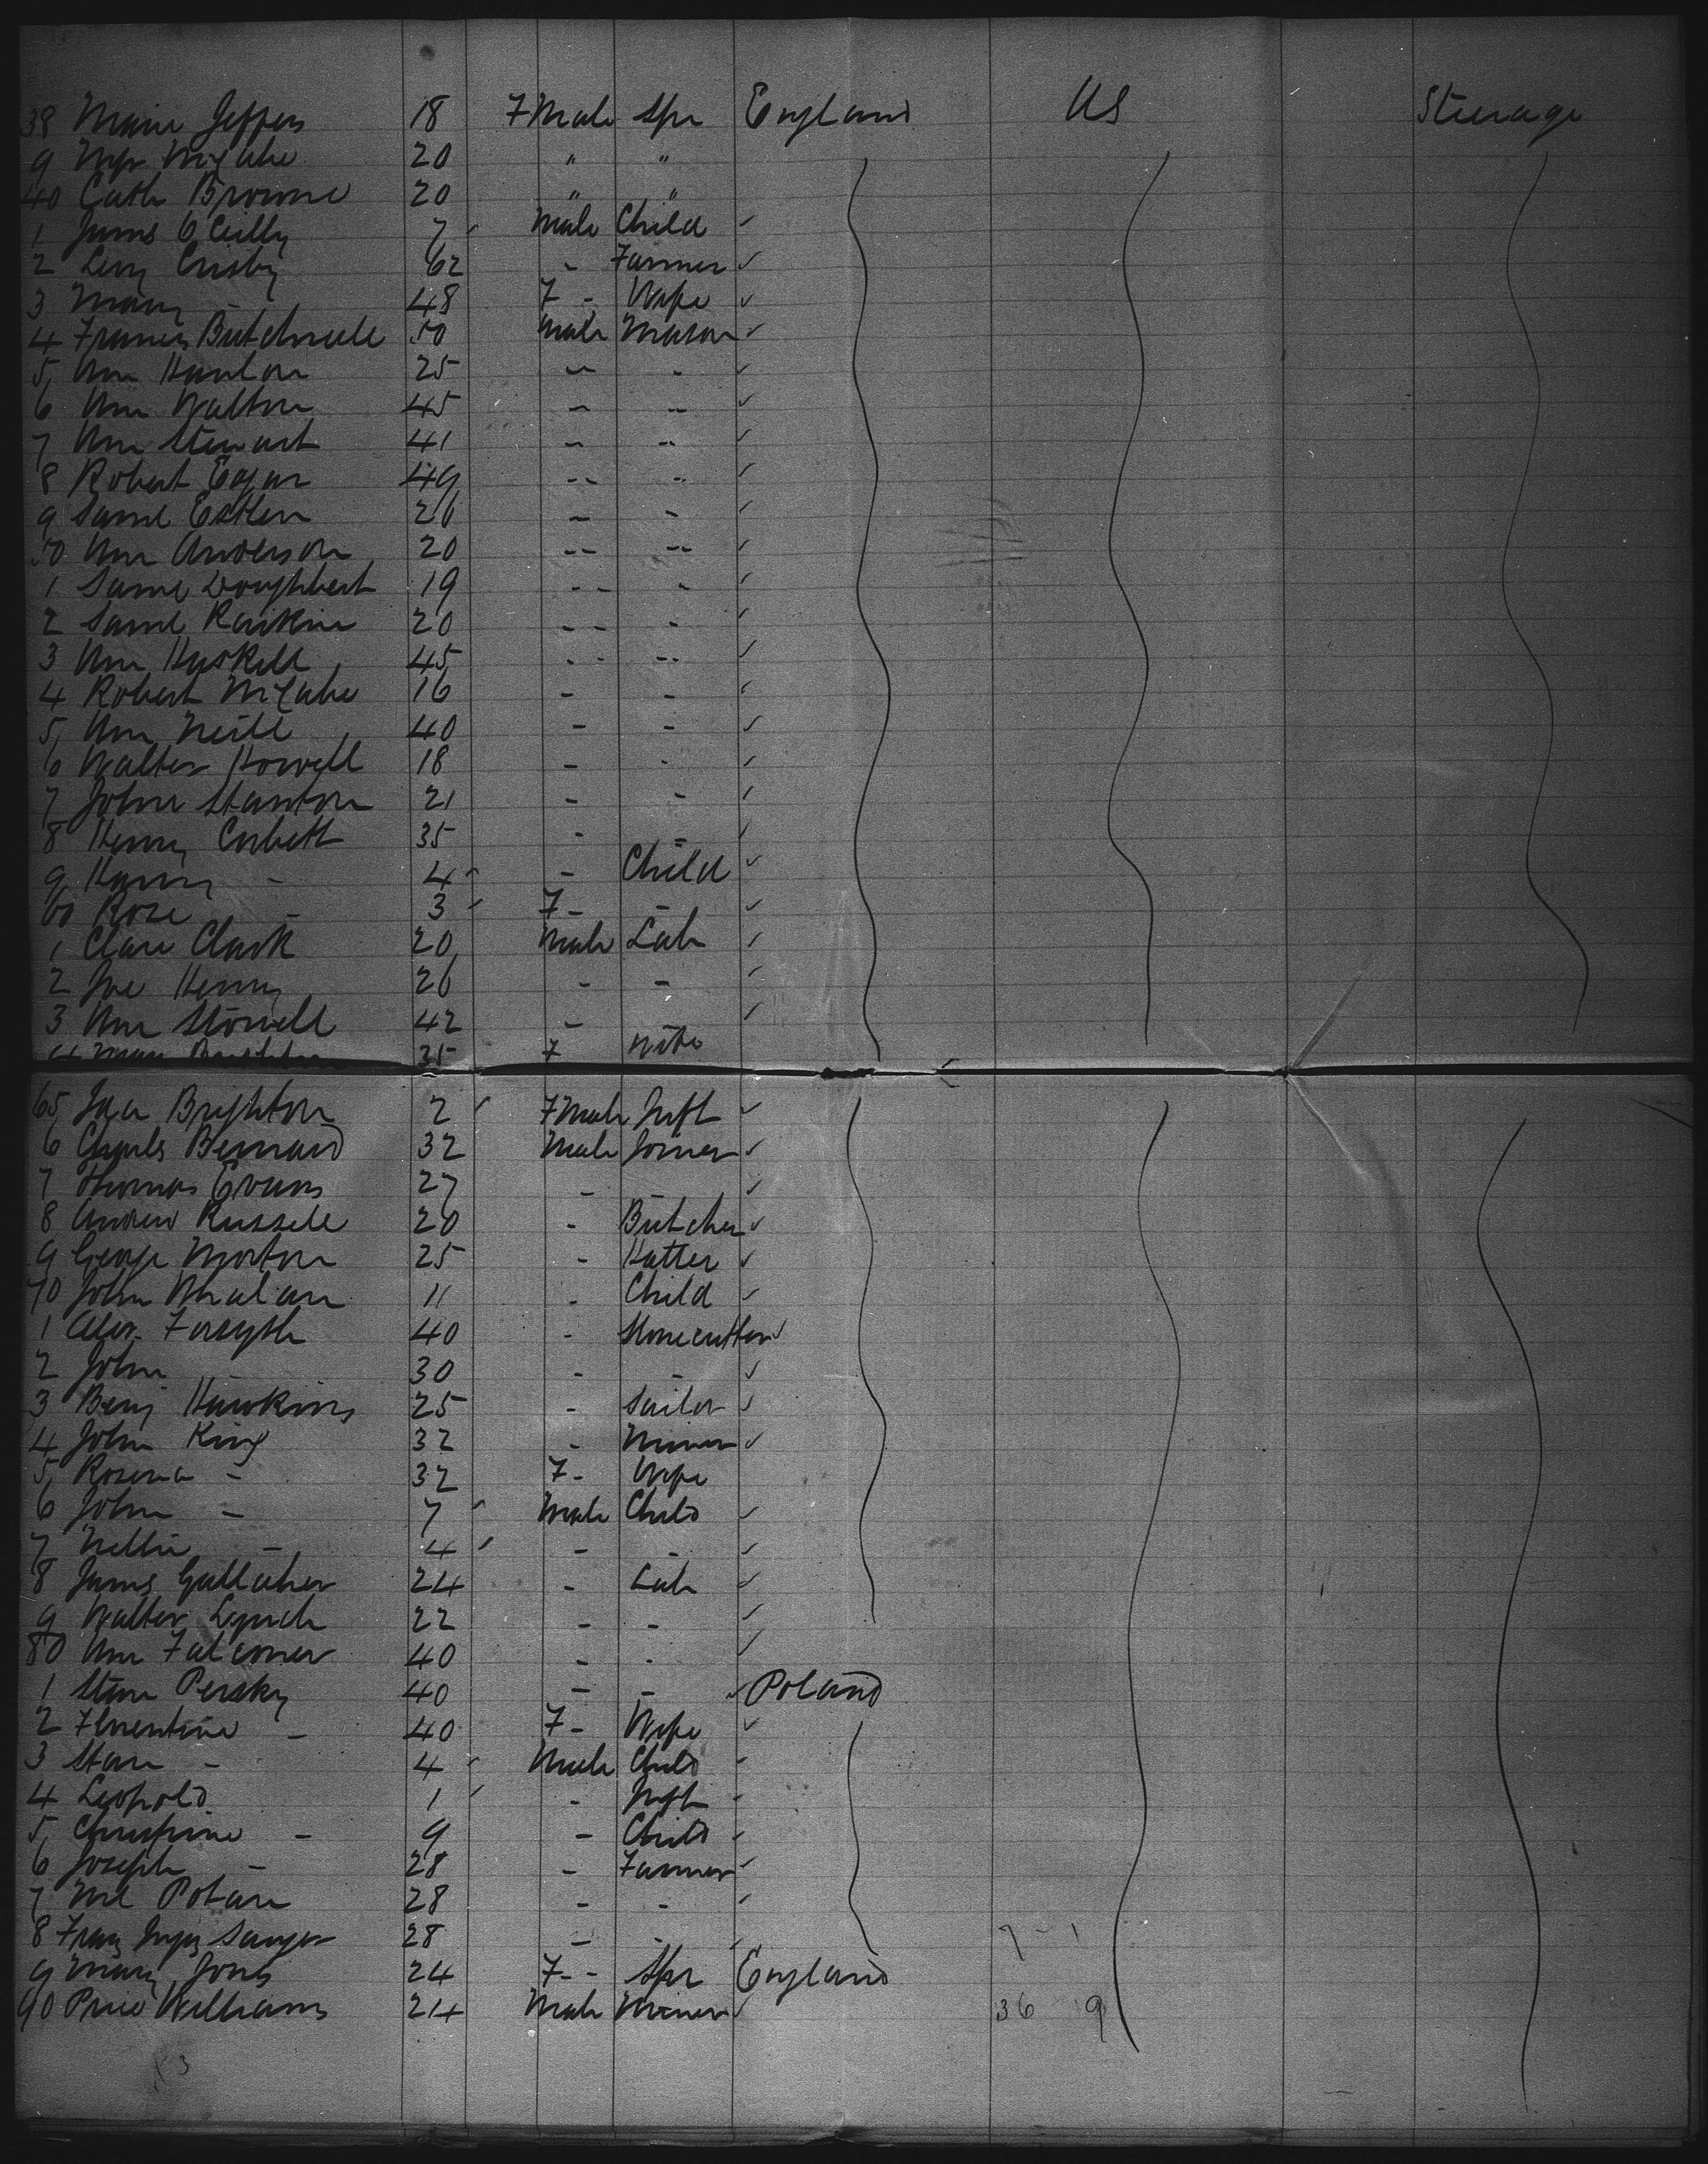 38 Marie Jeffers 18 Female Spr England US Steerage
9 McCabe 20 " "
40 Cath Browne 20 " "
1 James O'Reilly 7 Male Child
2 Levy Crosby 62 - Farmer
3 Mary - 48 F - Wife
4 Francis 50 Male Mason
5 Wm Hanlon 25 - -
6 Wm Walton 45 - -
7 Wm Stewart 41 - -
8 Robert Edgar 49 - -
9 Saml 26 - -
50 Wm Anderson 20 - -
1 Saml 19 - -
2 Saml Rankine 20 - -
3 Wm Haskell 45 - -
4 Robert McCabe 16 - -
5 Wm Neill 40 - -
6 Walter Howell 18 - -
7 John Stanton 21 - -
8 Henry Corbett 35 - -
9 Harry - 4 - Child
60 Rose - 3 F - -
1 Clark 20 Male Lab
2 Joe Henry 26 - -
3 Wm 42 -
64 Mary Brighton 35 F Wife
65 Ida Brighton 2 Female Inft
6 Charles Bernard 32 Male Joiner
7 Thomas Evans 27 - -
8 Andrew Russell 20 - Butcher
9 George Morton 25 - Hatter
70 John Whalan 11 - Child
1 Alex. Forsyth 40 - Stonecutter
2 John 30 - -
3 Benj Hawkins 25 - Sailor
4 John King 32 - Miner
5 Rosena - 32 F - Wife
6 John - 7 Male Child
7 Nellie - 4 - -
8 James Gallaher 24 - Lab
9 Walter Lynch 22 - -
80 Wm Falconer 40 - -
1 Persky 40 - - Poland
2 Florentine - 40 F - Wife
3 Stan - 4 Male Child
4 Leopold 1 - Inft
5 - 9 - Child
6 Joseph - 28 - Farmer
7 28 - -
8 Franz 28 - -
9 Mary Jones 24 F - - Spr England
90 Williams 24 Male Miner 36 9